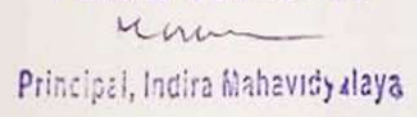 Principal, Indira Mahavidyalaya